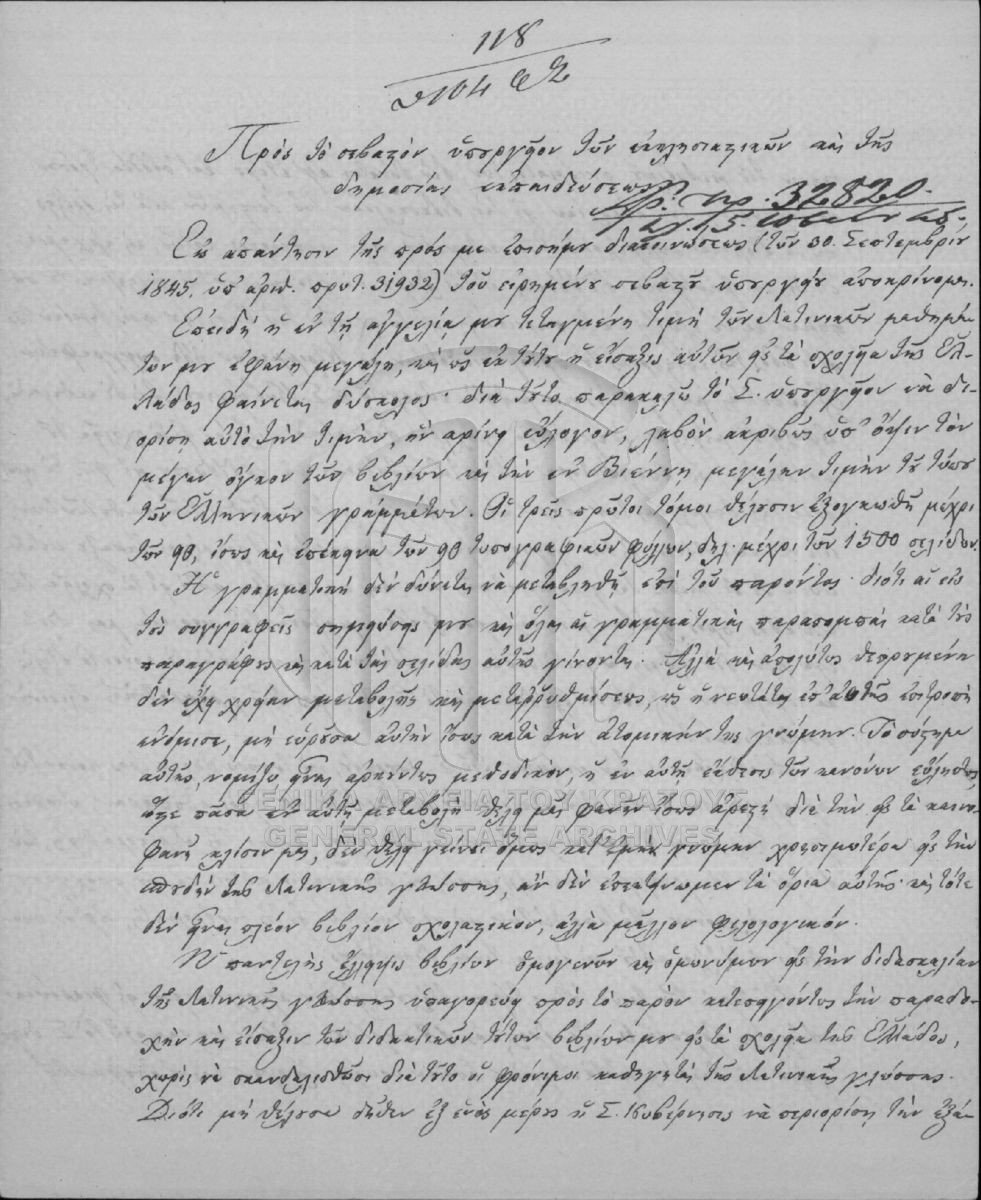 118
3104
Πρὸς τὸ σεβαστὸν ὑπουργεῖον τῶν ἐκκλησιαστικῶν καὶ τῆς
δημοσίας ἐκπαιδεύσεως
Ἀρ. πρ. 32820.
Εἰς ἀπάντησιν τῆς πρός με ἐπισήμου διακοινώσεως (τῶν 30. Σεπτεμβρίου
1845. ὑπ' ἀριθ. πρωτ. 31932) τοῦ εἰρημένου σεβαστοῦ ὑπουργείου ἀποκρίνομαι.
Ἐπειδὴ ἡ ἐν τῇ ἀγγελίᾳ μου τεταγμένη τιμὴ τῶν Λατινικῶν μαθημά-
των μου ἐφάνη μεγάλη, καὶ ὡς ἐκ τούτου ἡ εἴσαξις αὐτῶν εἰς τὰ σχολεῖα τῆς Ἑλ-
λάδος φαίνεται δύσκολος· διὰ τοῦτο παρακαλῶ τὸ Σ. ὑπουργεῖον νὰ δι-
ορίσῃ αὐτὸ τὴν τιμὴν, ἣν κρίνῃ εὔλογον, λαβὸν ἀκριβῶς ὑπ' ὄψιν τὸν
μέγαν ὄγκον τῶν βιβλίων καὶ τὴν ἐν Βιέννῃ μεγάλην τιμὴν τοῦ τύπου
τῶν Ἑλληνικῶν γραμμάτων. Οἱ τρεῖς πρῶτοι τόμοι θέλουσιν ἐξογκωθῆ μέχρι
τῶν 90, ἴσως καὶ ἐπέκεινα τῶν 90 τυπογραφικῶν φύλλων, δηλ. μέχρι τῶν 1500 σελίδων.
Ἡ γραμματικὴ δὲν δύναται νὰ μεταβληθῇ ἐπὶ τοῦ παρόντος· διότι αἱ εἰς
τοὺς συγγραφεῖς σημειώσεις μου καὶ ὅλαι αἱ γραμματικαὶ παραπομπαὶ κατὰ τὰς
παραγράφους καὶ κατὰ τὰς σελίδας αὐτῆς γίνονται. Ἀλλὰ καὶ ἀπολύτως θεωρουμένη
δὲν ἔχει χρείαν μεταβολῆς καὶ μεταρρυθμίσεως, ὡς ἡ ἐπ' αὐτῆς ἐπιτροπὴ
ἐνόμισε, μὴ εὑροῦσα αὐτὴν ἴσως κατὰ τὴν ἀτομικήν της γνώμην. Τὸ σύστημα
αὐτῆς, νομίζω εἶναι ἀρκούντως μεθοδικὸν, ἡ ἐν αὐτῇ ἔκθεσις τῶν κανόνων εὔληπτος,
ὥστε πᾶσα ἐν αὐτῇ μεταβολὴ θέλει μᾶς φανῆν ἴσως ἀρεστὴ διὰ τὴν εἰς τὰ καινο-
φανῆ κλίσιν μας, δὲν θέλει γείνει ὅμως κατ' ἐμὴν γνώμην χρησιμωτέρα εἰς τὴν
σπουδὴν τῆς Λατινικῆς γλώσσης, ἂν δὲν ἐπεκτείνωμεν τὰ ὅρια αὐτῆς· καὶ τότε
δὲν εἶναι πλέον βιβλίον σχολαστικὸν, ἀλλὰ μᾶλλον φιλολογικόν.
Ἡ παντελὴς ἔλλειψις βιβλίων ὁμογενῶν καὶ ὁμωνύμων εἰς τὴν διδασκαλίαν
τῆς Λατινικῆς γλώσσης ὑπαγορεύει πρὸς τὸ παρὸν κατεπειγόντως τὴν παραδο-
χὴν καὶ εἴσαξιν τῶν διδακτικῶν τούτων βιβλίων μου εἰς τὰ σχολεῖα τῆς Ἑλλάδος,
χωρὶς νὰ σκανδαλισθῶσι διὰ τοῦτο οἱ φρόνιμοι καθηγηταὶ τῆς Λατινικῆς γλώσσης.
Διότι μὴ θέλουσα δῆθεν ἐξ ἑνὸς μέρους ἡ Σ. Κυβέρνησις νὰ περιορίσῃ τὴν ἐξά-
ΓΕΝΙΚΑ ΑΡΧΕΙΑ ΤΟΥ ΚΡΑΤΟΥΣ
GENERAL STATE ARCHIVES